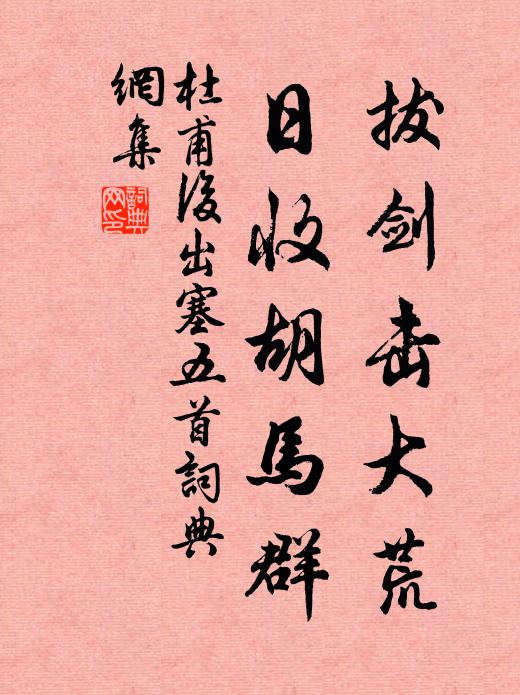 拔剑击大荒
日收胡馬群
杜甫後出塞五首詞典
網集
詞典
网印